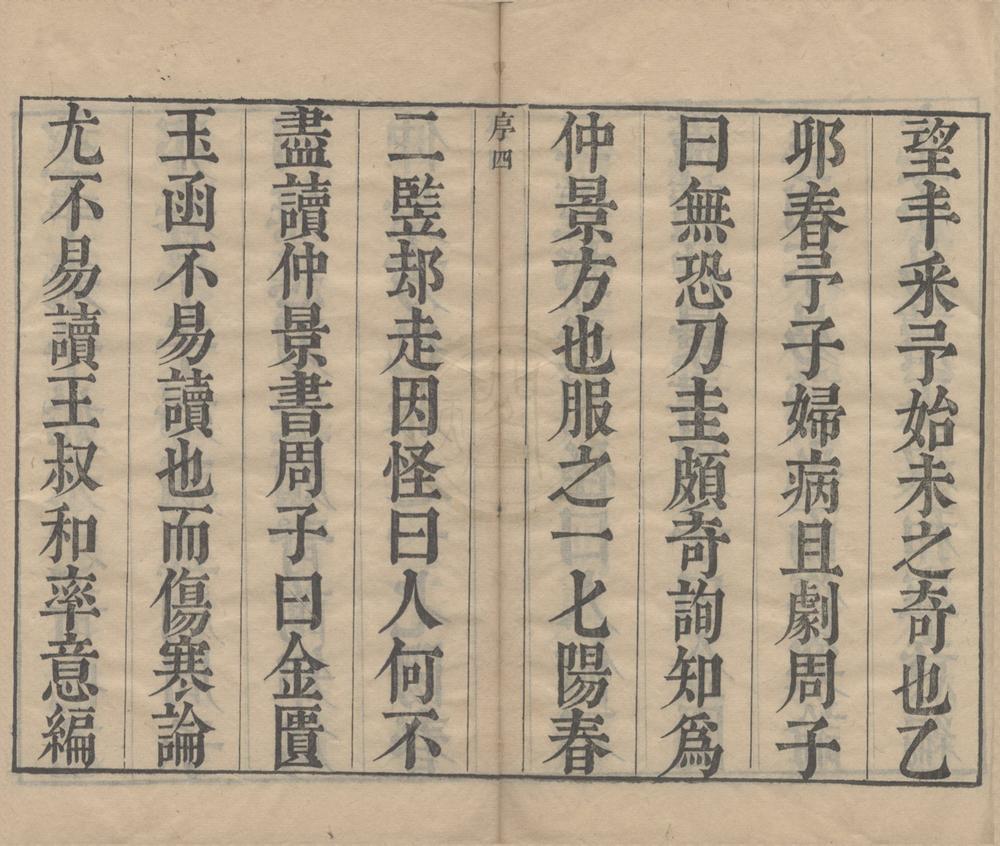 望丰釆予始未之奇也乙
卯春予子婦病且劇周子
曰無恐刀圭頗奇詢知爲
仲景方也服之一七陽春
序四
二豎却走因怪曰人何不
盡讀仲景書周子曰金匱
玉函不易讀也而傷寒論
尤不易讀王叔和率意編